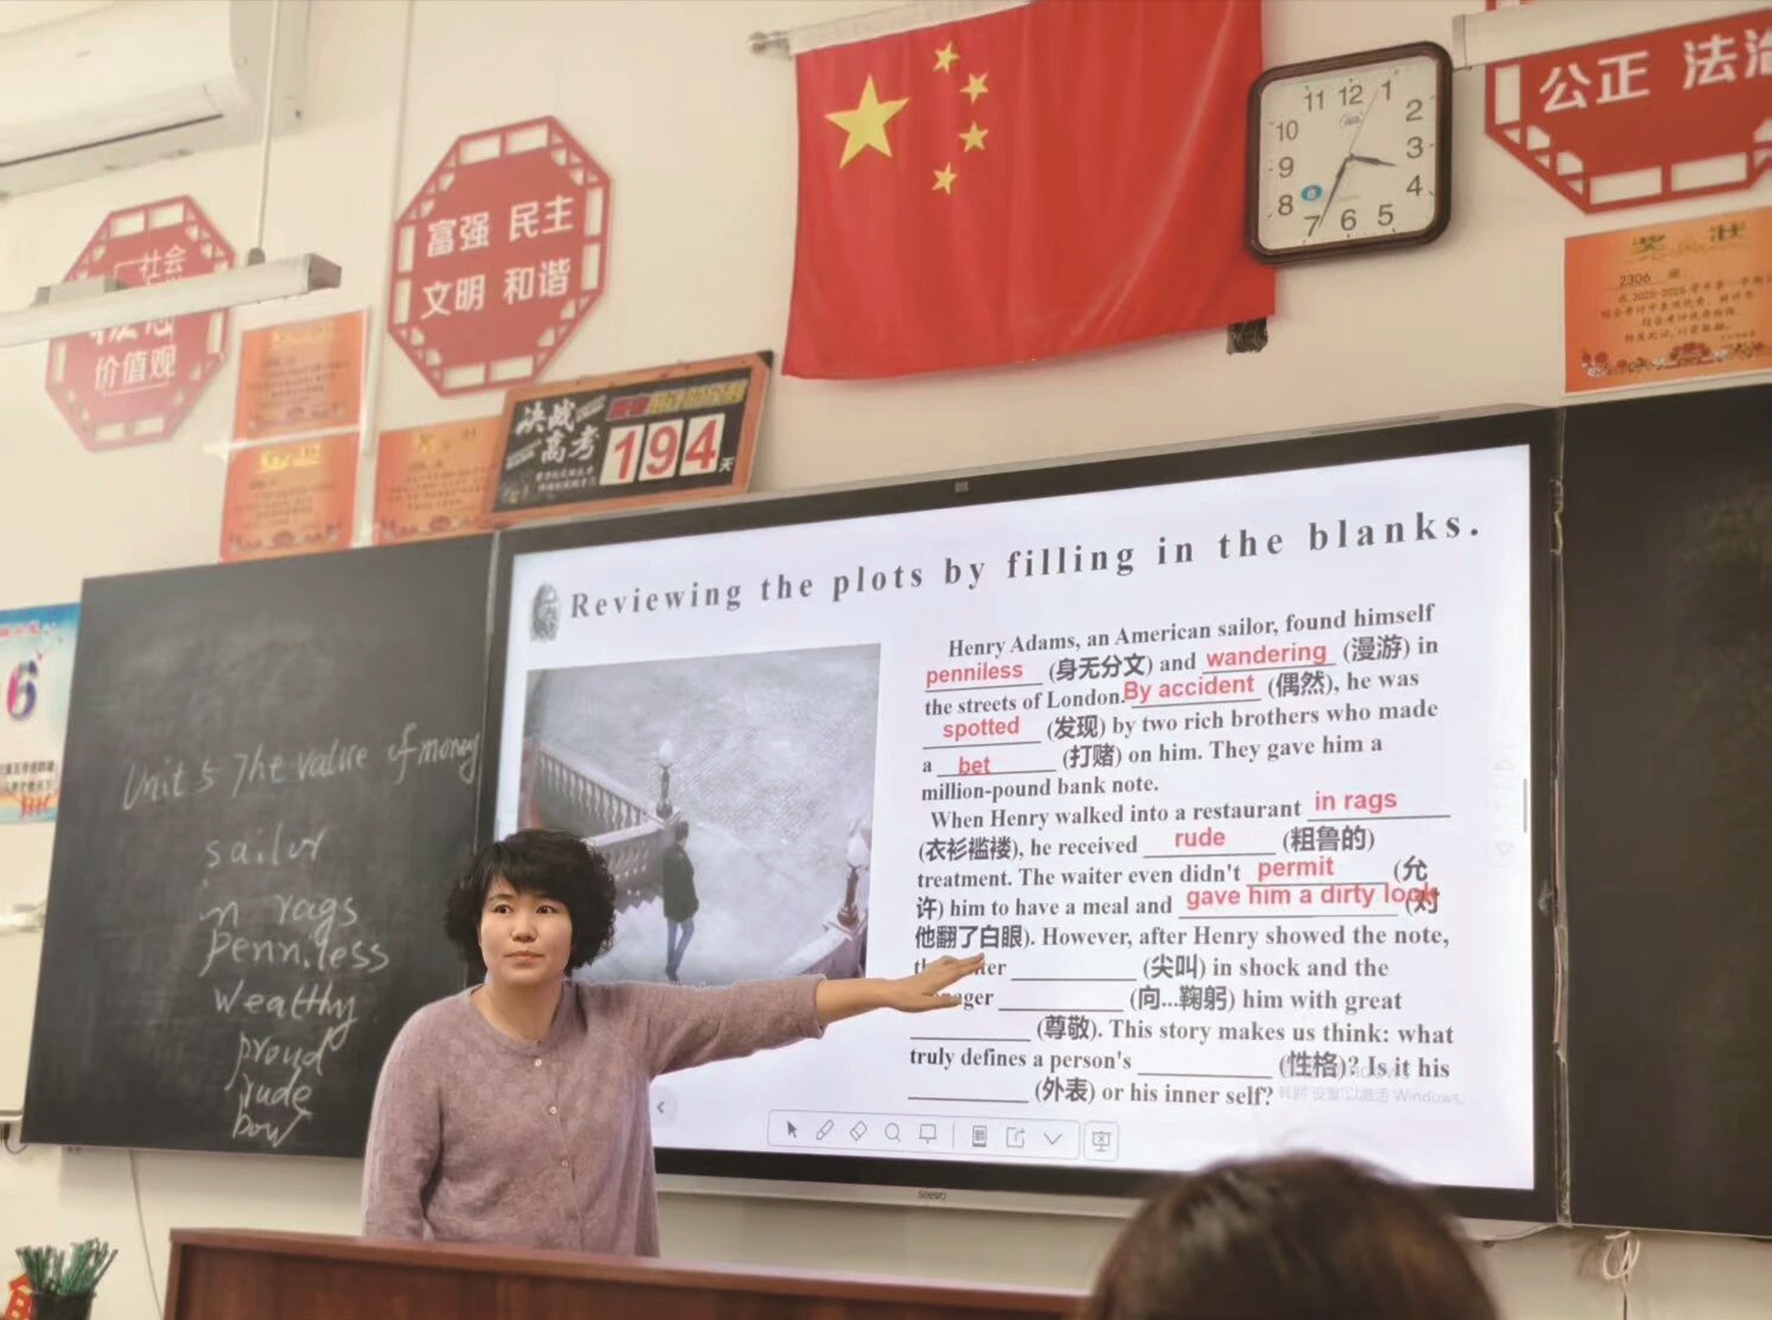 社会
价值观
富强 民主
文明 和谐
公正 法治
11 12 1
10 2
9 3
8 4
7 6 5
奖 状
2306 班
决战
高考
194
天
6
Unit 5 The value of money
sailor
in rags
penniless
wealthy
proud
rude
bow
Reviewing the plots by filling in the blanks.
Henry Adams, an American sailor, found himself
penniless (身无分文) and wandering (漫游) in
the streets of London. By accident (偶然), he was
spotted (发现) by two rich brothers who made
a bet (打赌) on him. They gave him a
million-pound bank note.
When Henry walked into a restaurant in rags
(衣衫褴褛), he received rude (粗鲁的)
treatment. The waiter even didn't permit (允
许) him to have a meal and gave him a dirty look (对
他翻了白眼). However, after Henry showed the note,
____________ (尖叫) in shock and the
____________ (向...鞠躬) him with great
____________ (尊敬). This story makes us think: what
truly defines a person's ____________ (性格)? Is it his
____________ (外表) or his inner self?
以激活 Windows。
seewo